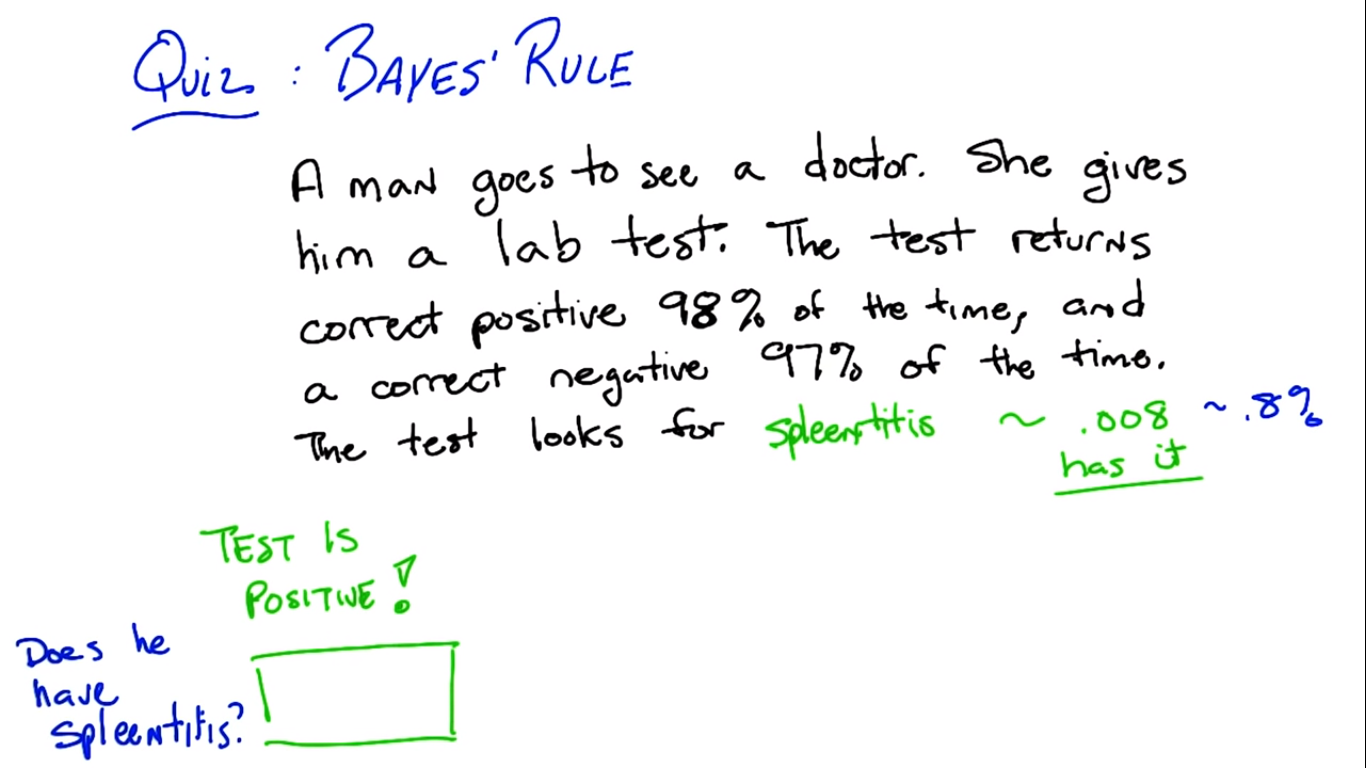 Quiz : BAYES' RULE
A man goes to see a doctor. She gives
him a lab test. The test returns
correct positive 98% of the time, and
a correct negative 97% of the time.
The test looks for spleentitis ~ .008 ~ .8%
has it
TEST IS
POSITIVE!
Does he
have
spleentitis?